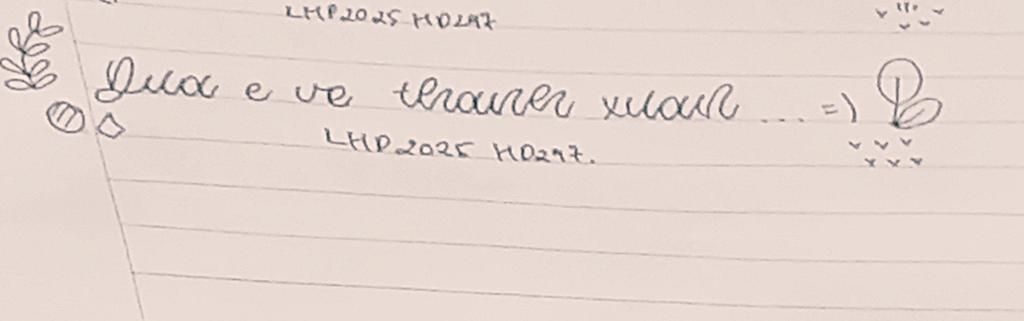 LHP2025 HD297
Đưa e về thanh xuân ... =)
LHP2025 HD297.